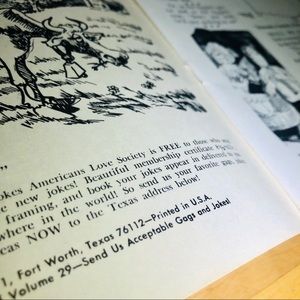 "
okes Americans Love Society is FREE to those who
new jokes! Beautiful membership certificate
framing, and book your jokes appear in delivered to
where in the world! So send us your favorite gags,
eas NOW to the Texas address below!
1, Fort Worth, Texas 76112—Printed in U.S.A.
Volume 29—Send Us Acceptable Gags and Jokes!